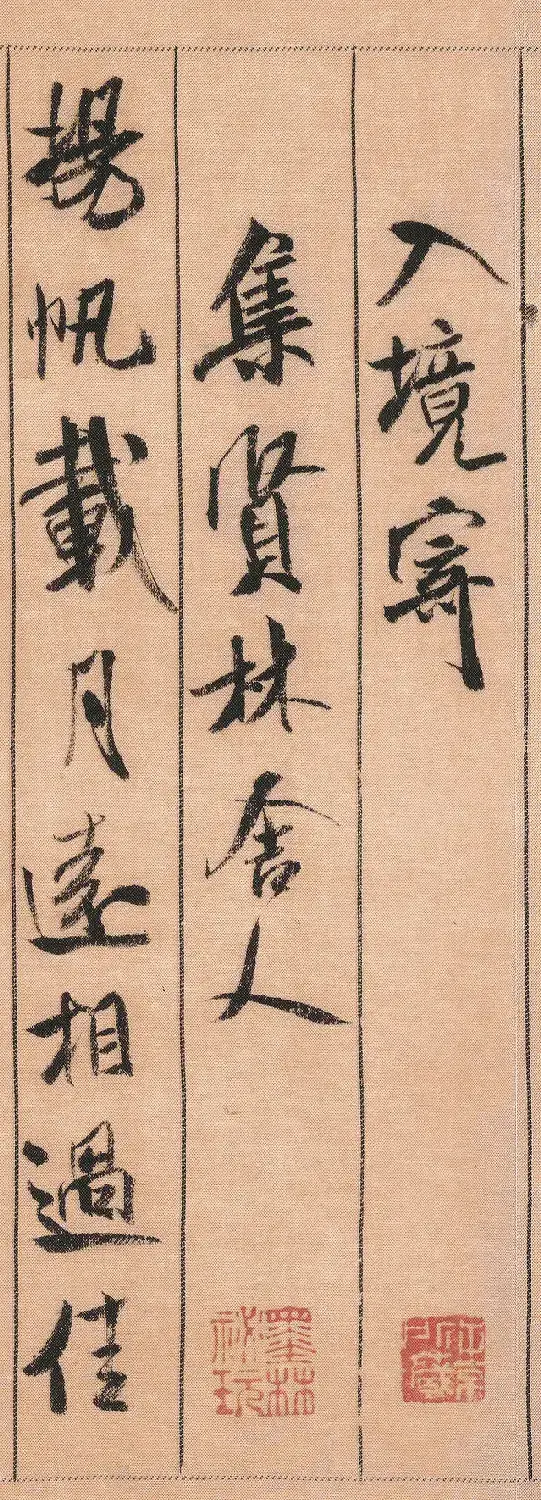 入境寄
集賢林舍人
揚帆載月遠相過佳
墨林秘玩